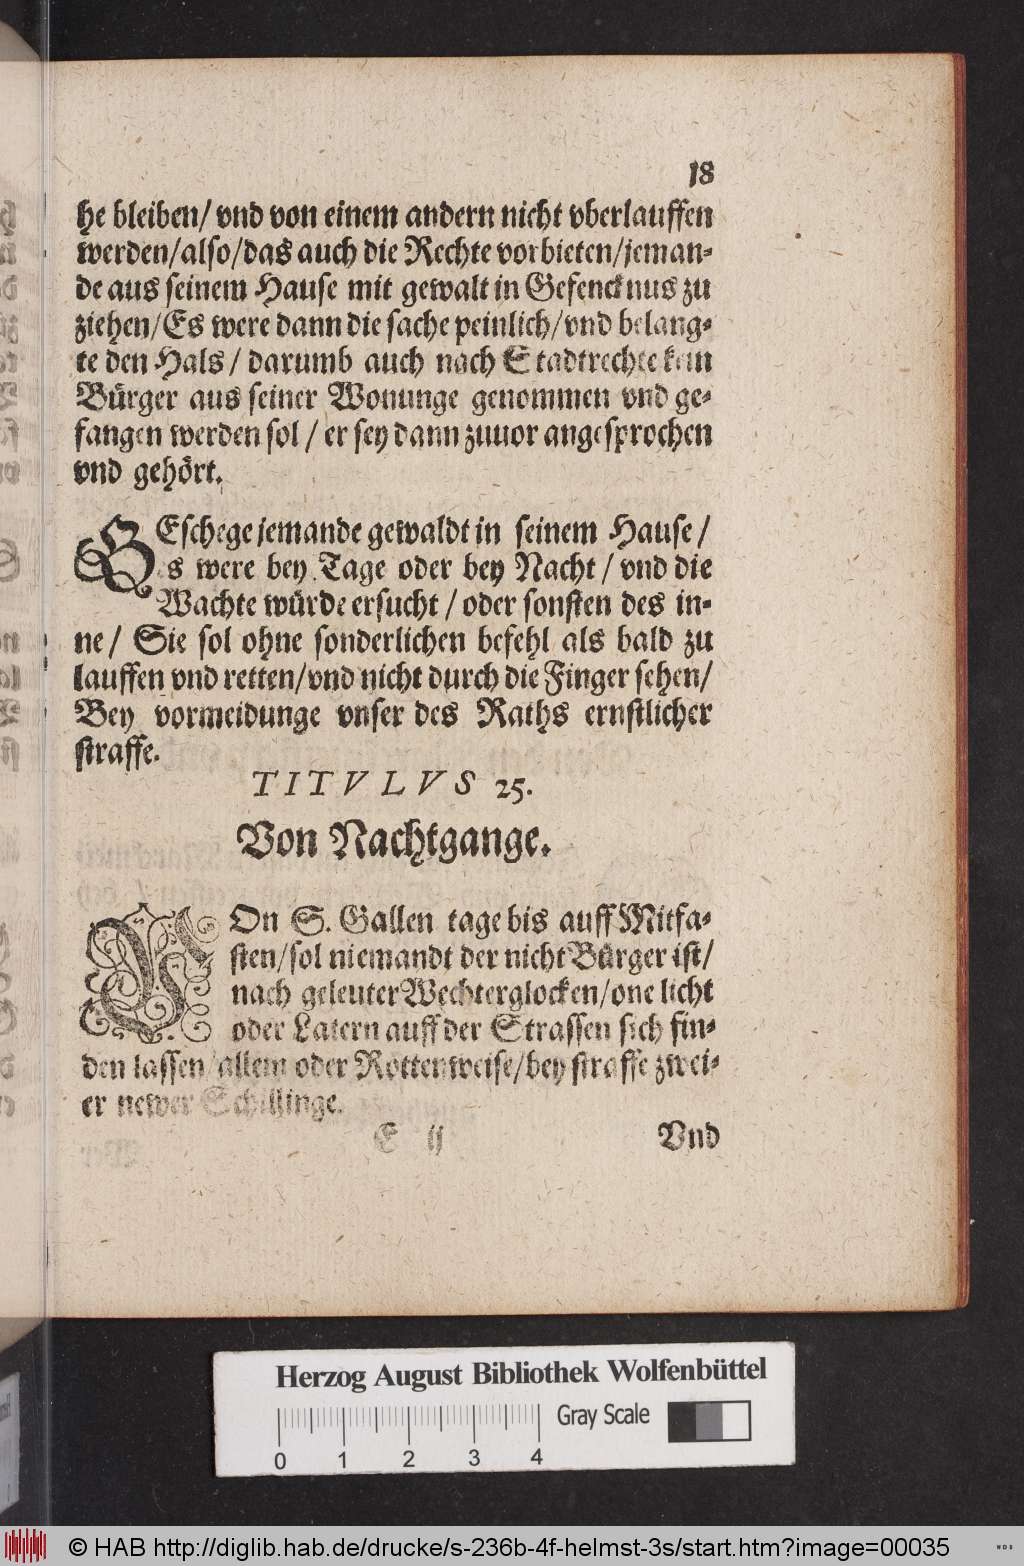 18
he bleiben/ vnd von einem andern nicht vberlauffen
werden/also/das auch die Rechte vorbieten/jeman-
de aus seinem Hause mit gewalt in Gefencknus zu
ziehen/Es were dann die sache peinlich/vnd belang-
te den Hals/ darumb auch nach Stadtrechte kein
Bürger aus seiner Wonunge genommen vnd ge-
fangen werden sol / er sey dann zuuor angesprochen
vnd gehört.
GEschege jemande gewaldt in seinem Hause/
Es were bey Tage oder bey Nacht/ vnd die
Wachte würde ersucht / oder sonsten des in-
ne/ Sie sol ohne sonderlichen befehl als bald zu
lauffen vnd retten/vnd nicht durch die Finger sehen/
Bey vormeidunge vnser des Raths ernstlicher
straffe.
TITVLVS 25.
Von Nachtgange.
VOn S. Gallen tage bis auff Mitfa-
sten/sol niemandt der nicht Bürger ist/
nach geleuter Wechterglocken/one licht
oder Latern auff der Strassen sich fin-
den lassen/allein oder Rottenweise/bey straffe zwei-
er newer Schillinge.
E ij Vnd
Herzog August Bibliothek Wolfenbüttel
Gray Scale
0 1 2 3 4
© HAB http://diglib.hab.de/drucke/s-236b-4f-helmst-3s/start.htm?image=00035